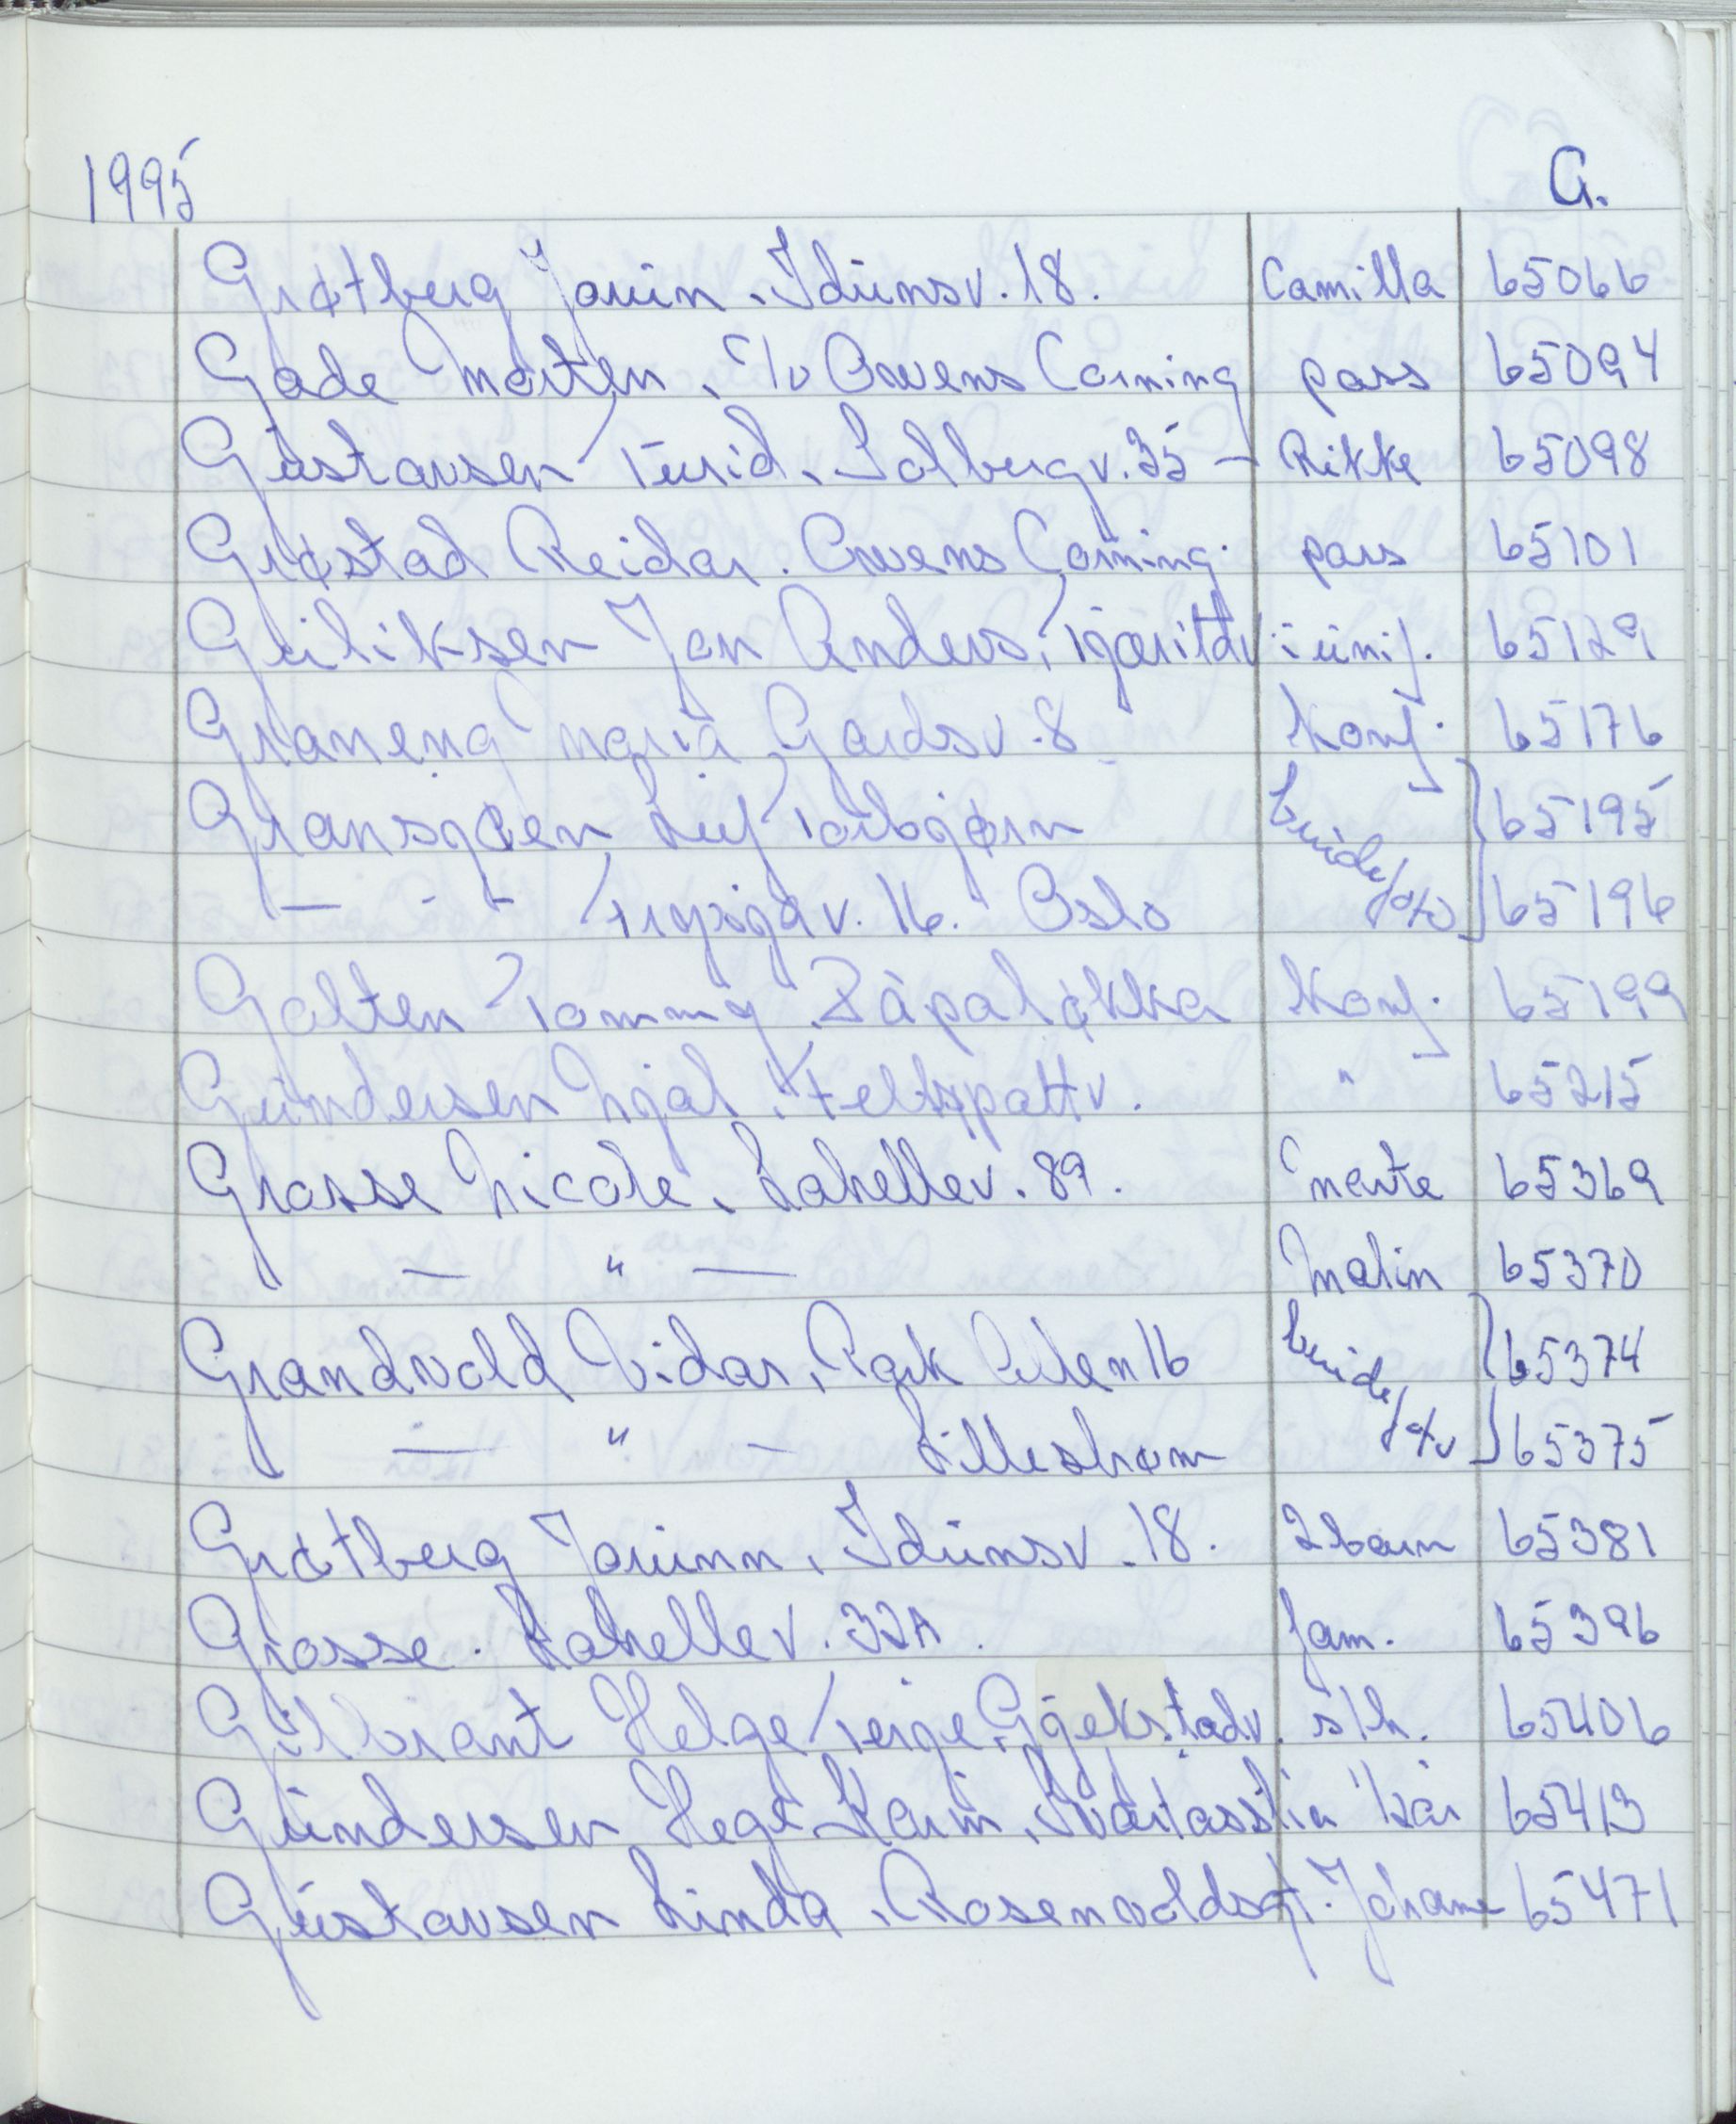 1995 G.
Grøtberg Jorun. Idunsv. 18. Camilla 65066
Gade Morten, c/o Owens Corning pass 65094
Gustavsen Turid. Solbergv. 35 - Rikke 65098
Grøstad Reidar. Owens Corning. pass 65101
Guliksen Jan Anders, Tjøritdv i unif. 65129
Graneng Maria Gardsv. 8 Konf. 65176
Gransgøen Leif Torbjørn brude/ 65195
— - - Trysilgv. 16. Oslo 65196
Golten Tommy Zapaløkka Konf. 65199
Gundersen Njål. Feltspattv. " 65215
Grosse Nicole. Lahellev. 89. Merte 65369
— " — Malin 65370
Grandvold Vidar, Park Alleen 16 brude/ 65374
— " — Lillestrøm 65375
Grøtberg Jorunn. Idunsv. 18. 2 barn 65381
Grosse. Lahellev. 32A. fam. 65396
Gulbrant Helge Terje. Gjekstadv. s/h. 65406
Gundersen Hege Karin, Kai 65413
Gustavsen Linda. Rosenvoldsgt. Johanne 65471